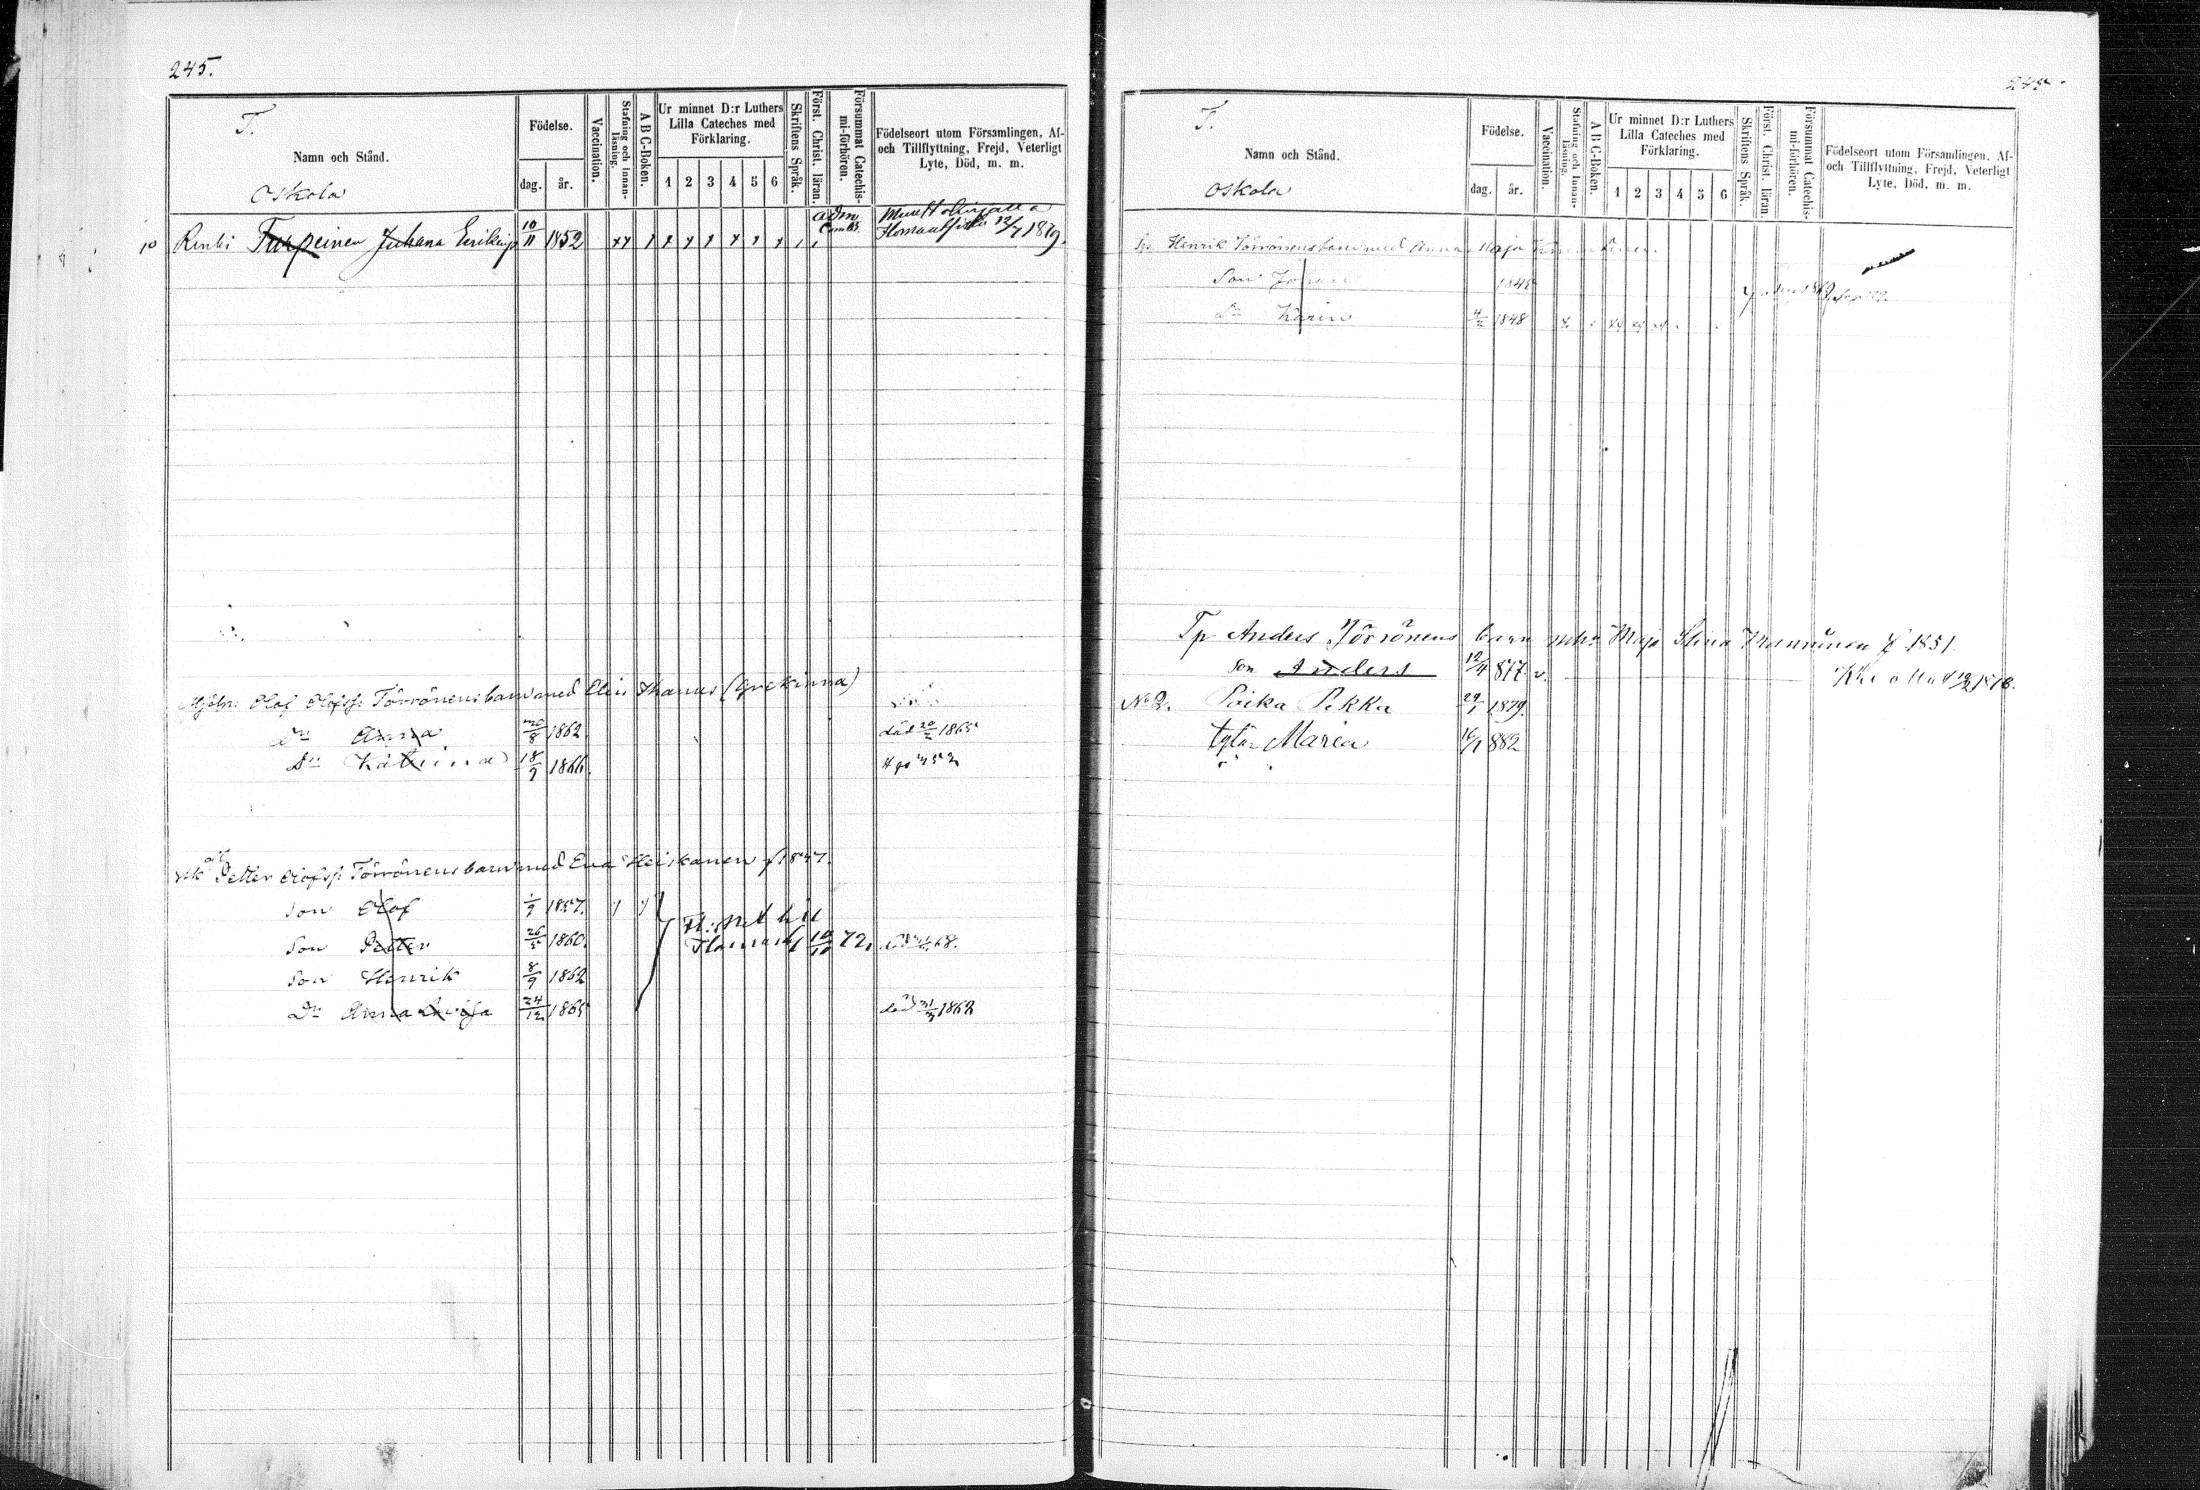 245.
T.
Namn och Stånd.
Oskola
Födelse.
dag. år.
Vaccination.
Stafning och Innan-läsning.
A B C-Boken.
Ur minnet D:r Luthers Lilla Cateches med Förklaring.
1 2 3 4 5 6
Skriftens Språk.
Först. Christ. läran.
Försummat Catechis-mi-förhören.
Födelseort utom Församlingen, Af- och Tillflyttning, Frejd, Veterligt Lyte, Död, m. m.
Renki Turpeinen Juhana Erikinp 10/11 1852 Adm 12/7 1879.
Olof Olofss: Törrönens barn med Elin Ihanus (Grekinna)
Dr Anna 20/8 1862. död 20/2 1865
Dr Katrina 18/9 1866.
Petter Olofss: Törrönens barn med Eva Heiskanen f 1847.
Son Olof 1/9 1857.
Son Petter 26/5 1860. 10/10 72.
Son Henrik 8/9 1862
Dr Anna Lovisa 24/12 1865 död 31/3 1868
245
T.
Namn och Stånd.
Oskola
Födelse.
dag. år.
Vaccination.
Stafning och Innan-läsning.
A B C-Boken.
Ur minnet D:r Luthers Lilla Cateches med Förklaring.
1 2 3 4 5 6
Skriftens Språk.
Först. Christ. läran.
Försummat Catechis-mi-förhören.
Födelseort utom Församlingen, Af- och Tillflyttning, Frejd, Veterligt Lyte, Död, m. m.
Henrik Törrönens barn med Anna Maja
Son Johan 1845
Dr Karin 4/2 1848
Tp Anders Törrönens barn m. h. Maja Stina Ikannünen f 1851.
Son Anders 12/4 877 v.
No 2. Poika Pekka 29/1 1879.
tytär Maria 16/1 882